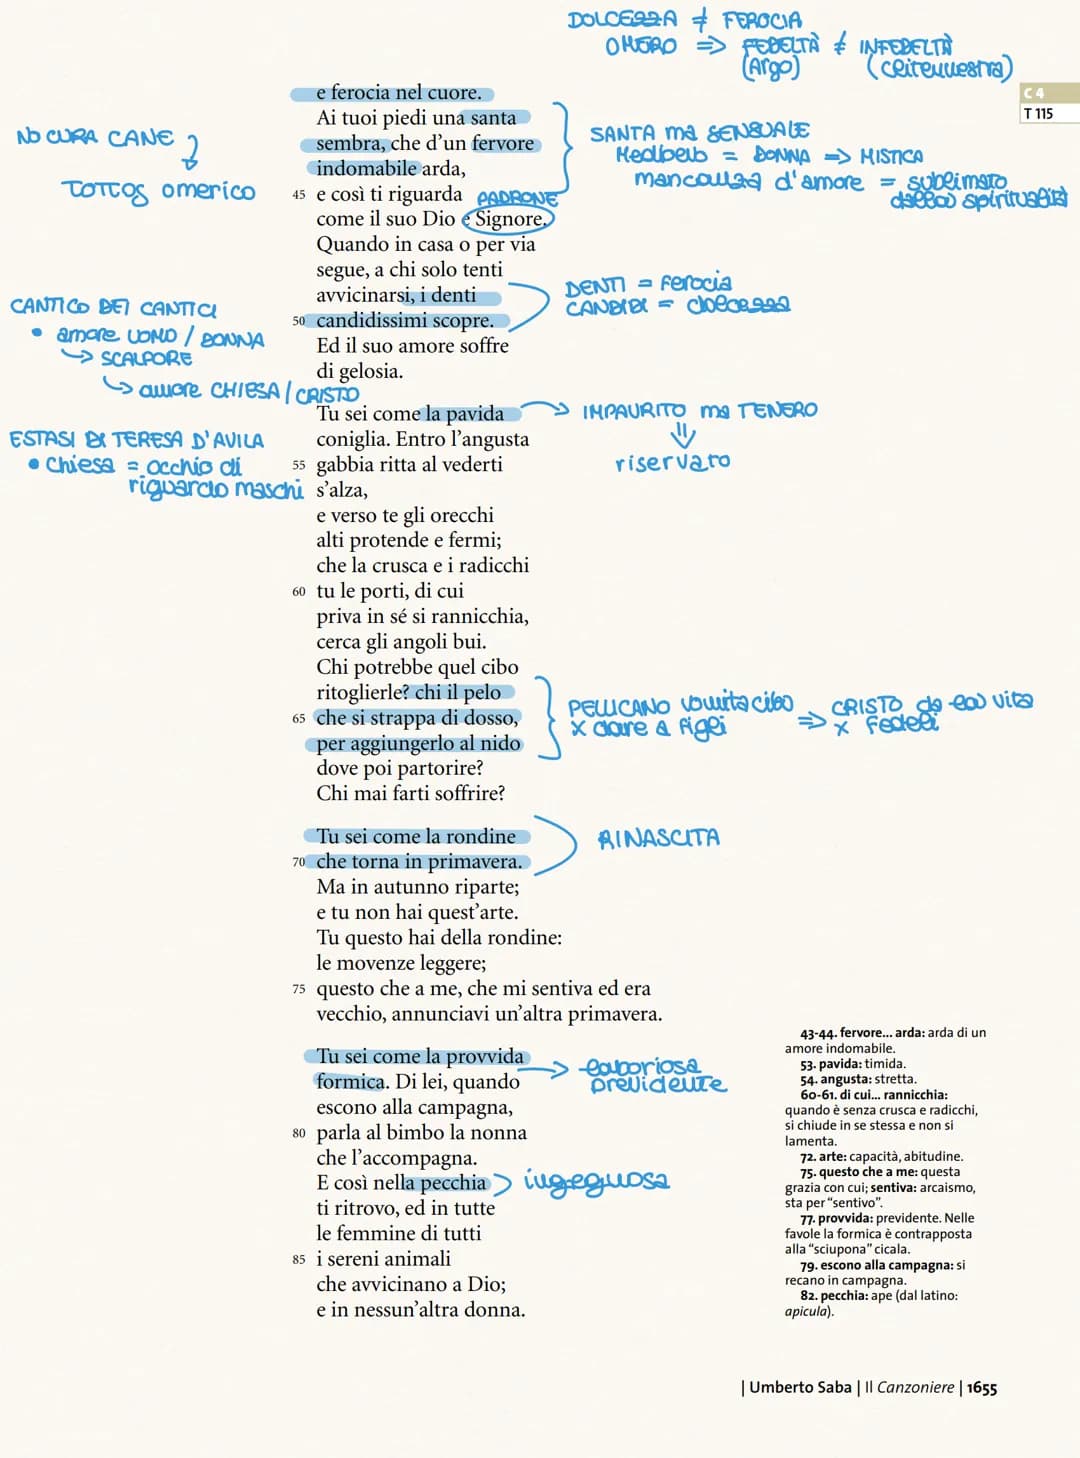 DOLCEZZA ≠ FEROCIA
OMERO => FEDELTÀ ≠ INFEDELTÀ
(Argo) (Clitennestra)
C 4
T 115
e ferocia nel cuore.
Ai tuoi piedi una santa
sembra, che d'un fervore
indomabile arda,
45 e così ti riguarda PADRONE
come il suo Dio e Signore.
Quando in casa o per via
segue, a chi solo tenti
avvicinarsi, i denti
50 candidissimi scopre.
Ed il suo amore soffre
di gelosia.
NO CURA CANE
TOTTOS omerico
SANTA ma SENSUALE
Medioevo = DONNA => MISTICA
mancanza d'amore = sublimato
dalla spiritualità
DENTI = ferocia
CANDIDI = dolcezza
CANTICO DEI CANTICI
• amore UOMO / DONNA
→ SCALPORE
→ amore CHIESA / CRISTO
ESTASI DI TERESA D'AVILA
• Chiesa = occhio di
riguardo maschi
Tu sei come la pavida
coniglia. Entro l'angusta
55 gabbia ritta al vederti
s'alza,
e verso te gli orecchi
alti protende e fermi;
che la crusca e i radicchi
60 tu le porti, di cui
priva in sé si rannicchia,
cerca gli angoli bui.
Chi potrebbe quel cibo
ritoglierle? chi il pelo
65 che si strappa di dosso,
per aggiungerlo al nido
dove poi partorire?
Chi mai farti soffrire?
→ IMPAURITO ma TENERO
riservato
PELLICANO vomita cibo => CRISTO dà la vita
x dare a figli x fedeli
Tu sei come la rondine
70 che torna in primavera.
Ma in autunno riparte;
e tu non hai quest'arte.
Tu questo hai della rondine:
le movenze leggere;
75 questo che a me, che mi sentiva ed era
vecchio, annunciavi un'altra primavera.
RINASCITA
Tu sei come la provvida
formica. Di lei, quando
escono alla campagna,
80 parla al bimbo la nonna
che l'accompagna.
E così nella pecchia
ti ritrovo, ed in tutte
le femmine di tutti
85 i sereni animali
che avvicinano a Dio;
e in nessun'altra donna.
→ laboriosa
previdente
ingegnosa
43-44. fervore... arda: arda di un
amore indomabile.
53. pavida: timida.
54. angusta: stretta.
60-61. di cui... rannicchia:
quando è senza crusca e radicchi,
si chiude in se stessa e non si
lamenta.
72. arte: capacità, abitudine.
75. questo che a me: questa
grazia con cui; sentiva: arcaismo,
sta per "sentivo".
77. provvida: previdente. Nelle
favole la formica è contrapposta
alla "sciupona" cicala.
79. escono alla campagna: si
recano in campagna.
82. pecchia: ape (dal latino:
apicula).
| Umberto Saba | Il Canzoniere | 1655